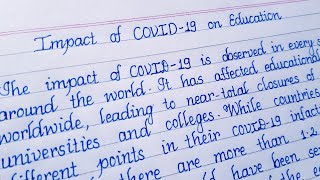 Impact of COVID-19 on Education
The impact of COVID-19 is observed in every
around the world. It has affected educational
worldwide, leading to near-total closures of
universities and colleges. While countries
different points in their COVID-19 infect
there are more than 1.2
have been